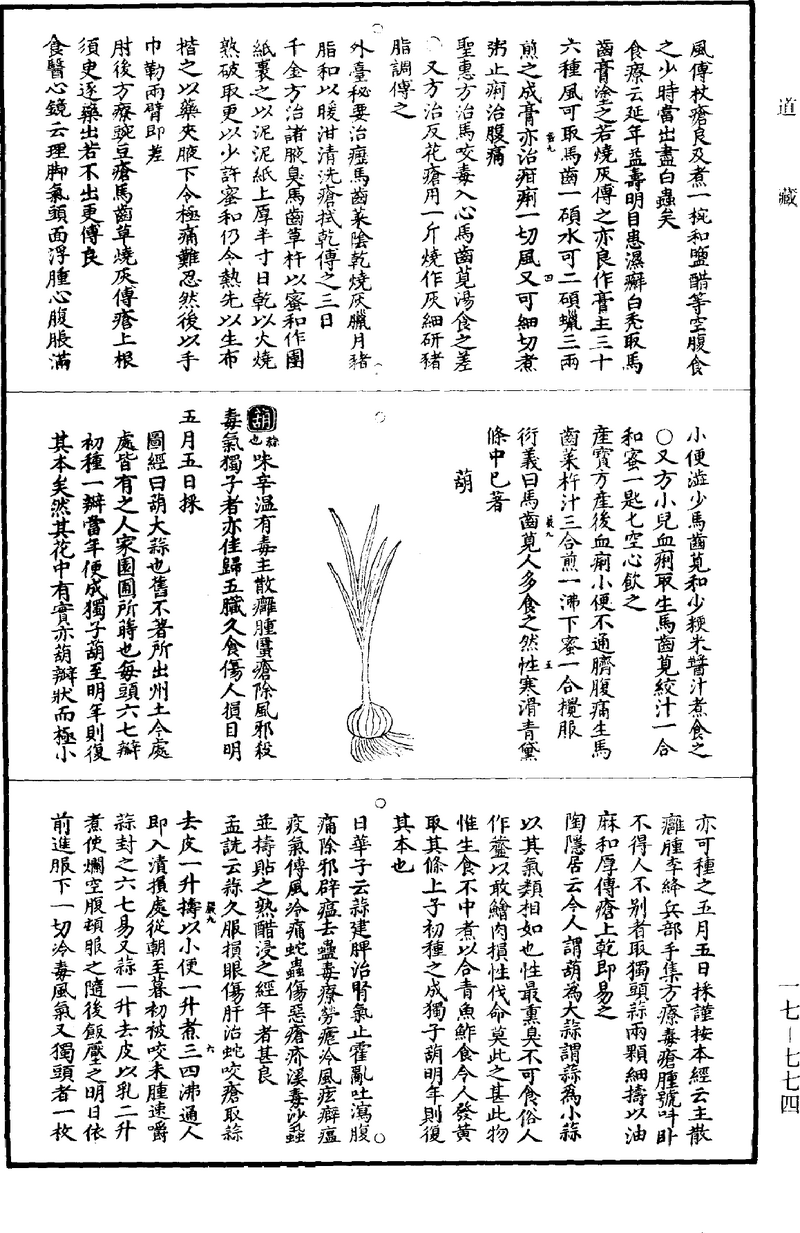 道藏
一七—七七四
風傅杖瘡良及煮一椀和鹽醋等空腹食
之少時當出盡白蟲矣
食療云延年益壽明目患濕癬白禿取馬
齒膏塗之若燒灰傅之亦良作膏主三十
六種風可取馬齒一碩水可二碩蠟三兩
煎之成膏亦治疳痢一切風又可細切煮
粥止痢治腹痛
聖惠方治馬咬毒入心馬齒莧湯食之差
○又方治反花瘡用一斤燒作灰細研豬
脂調傅之
外臺秘要治瘂馬齒菜陰乾燒灰臘月豬
脂和以暖泔清洗瘡拭乾傅之三日
千金方治諸腋臭馬齒草杵以蜜和作團
紙裹之以泥泥紙上厚半寸日乾以火燒
熟破取更以少許蜜和仍令熱先以生布
揩之以藥夾腋下令極痛難忍然後以手
巾勒兩臂即差
肘後方療豌豆瘡馬齒草燒灰傅瘡上根
須臾逐藥出若不出更傅良
食醫心鏡云理脚氣頭面浮腫心腹脹滿
小便澁少馬齒莧和少粳米醬汁煮食之
○又方小兒血痢取生馬齒莧絞汁一合
和蜜一匙匕空心飲之
產寶方產後血痢小便不通臍腹痛生馬
齒菜杵汁三合煎一沸下蜜一合攪服
衍義曰馬齒莧人多食之然性寒滑青黛
條中已著
葫
葫蒜也味辛溫有毒主散癰腫䘌瘡除風邪殺
毒氣獨子者亦佳歸五臟久食傷人損目明
五月五日採
圖經曰葫大蒜也舊不著所出州土今處
處皆有之人家園圃所蒔也每頭六七瓣
初種一瓣當年便成獨子葫至明年則復
其本矣然其花中有實亦葫瓣狀而極小
亦可種之五月五日採謹按本經云主散
癰腫李絳兵部手集方療毒瘡腫號叫卧
不得人不別者取獨頭蒜兩顆細擣以油
麻和厚傅瘡上乾即易之
陶隱居云今人謂葫為大蒜謂蒜為小蒜
以其氣類相如也性最熏臭不可食俗人
作虀以敢鱠肉損性伐命莫此之甚此物
惟生食不中煮以合青魚鮓食令人發黃
取其條上子初種之成獨子葫明年則復
其本也
日華子云蒜建脾治腎氣止霍亂吐瀉腹
痛除邪辟瘟去蠱毒療勞瘧冷風痃癖瘟
疫氣傅風冷痛蛇蟲傷惡瘡疥溪毒沙蝨
並擣貼之熟醋浸之經年者甚良
孟詵云蒜久服損眼傷肝治蛇咬瘡取蒜
去皮一升擣以小便一升煮三四沸通人
即入漬損處從朝至暮初被咬未腫速嚼
蒜封之六七易又蒜一升去皮以乳二升
煮使爛空腹頓服之隨後飯壓之明日依
前進服下一切冷毒風氣又獨頭者一枚